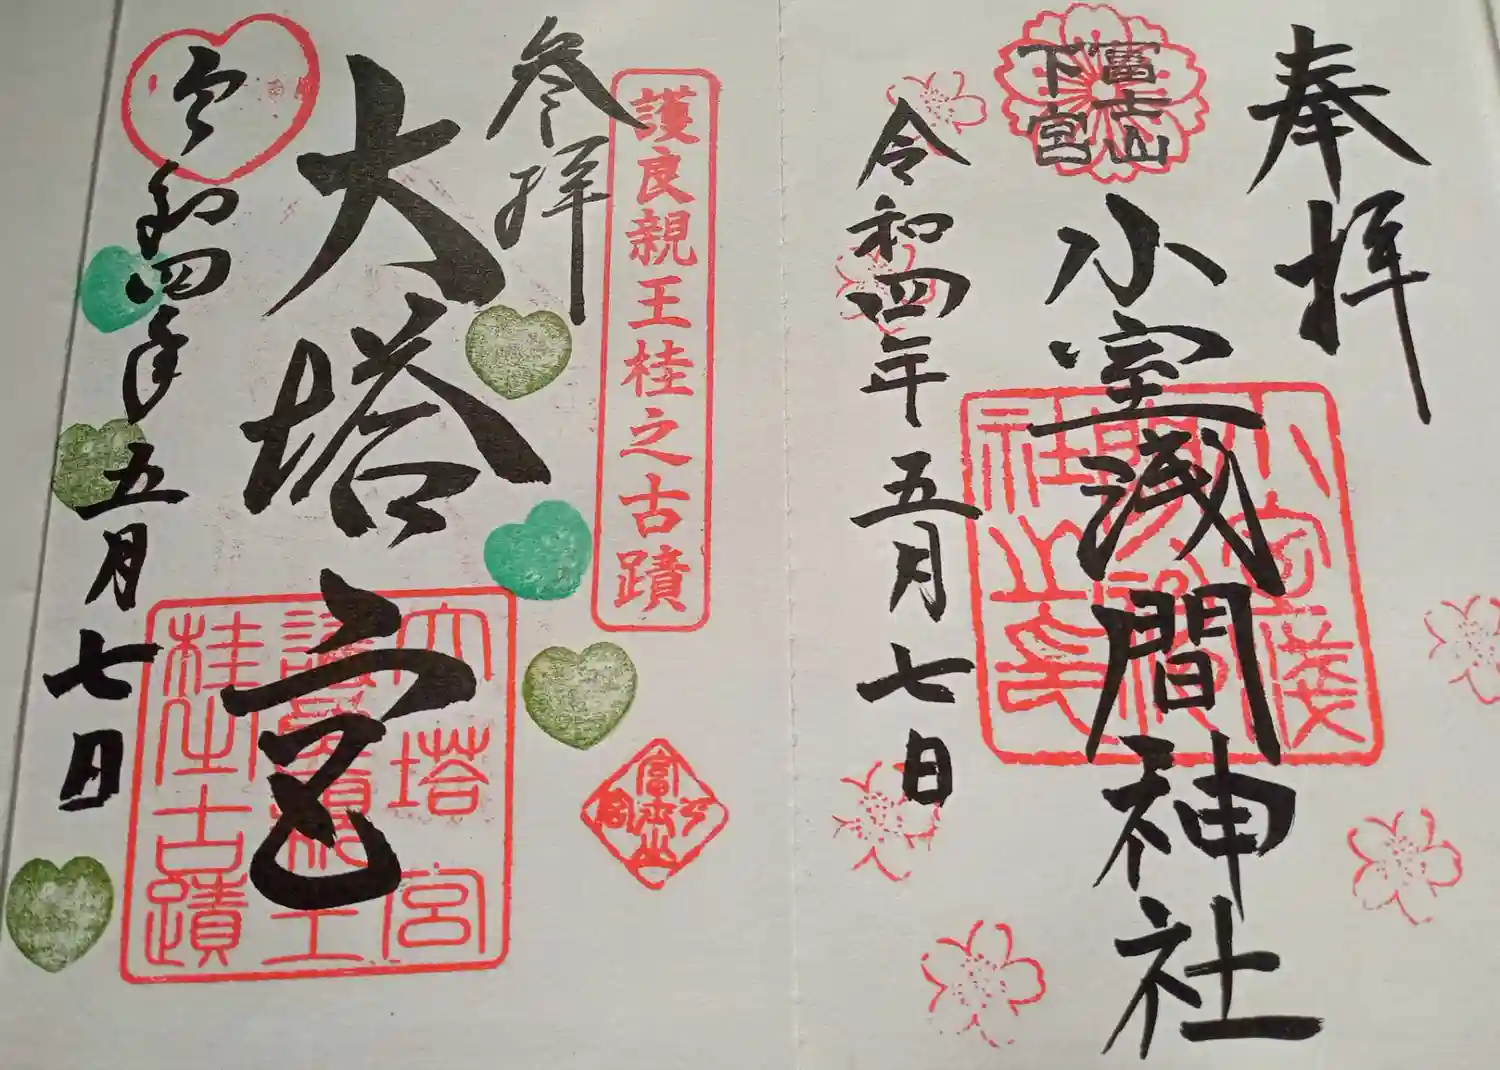 奉拝
富士山
下宮
小室浅間神社
令和四年五月七日
護良親王桂之古蹟
参拝
大塔宮
令和四年五月七日
大塔宮
護良親王
桂之古蹟